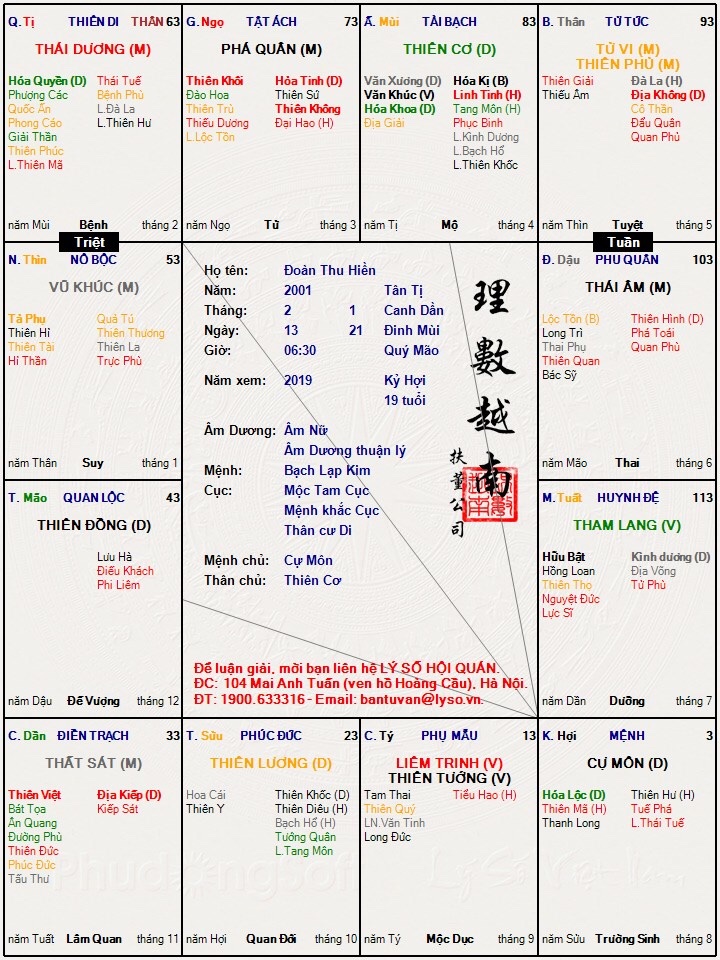 Q. Tị THIÊN DI THÂN 63
THÁI DƯƠNG (M)
Hóa Quyền (D) Thái Tuế
Phượng Các Bệnh Phù
Quốc Ấn L.Đà La
Phong Cáo L.Thiên Hư
Giải Thần
Thiên Phúc
L.Thiên Mã
năm Mùi Bệnh tháng 2
G. Ngọ TẬT ÁCH 73
PHÁ QUÂN (M)
Thiên Khôi Hỏa Tinh (D)
Đào Hoa Thiên Sứ
Thiên Trù Thiên Không
Thiếu Dương Đại Hao (H)
L.Lộc Tồn
năm Ngọ Tử tháng 3
Ấ. Mùi TÀI BẠCH 83
THIÊN CƠ (D)
Văn Xương (D) Hóa Kị (B)
Văn Khúc (V) Linh Tinh (H)
Hóa Khoa (D) Tang Môn (H)
Địa Giải Phục Binh
L.Kình Dương
L.Bạch Hổ
L.Thiên Khốc
năm Tị Mộ tháng 4
B. Thân TỬ TỨC 93
TỬ VI (M)
THIÊN PHỦ (M)
Thiên Giải Đà La (H)
Thiếu Âm Địa Không (D)
Cô Thần
Đẩu Quân
Quan Phủ
năm Thìn Tuyệt tháng 5
Triệt
Tuần
N. Thìn NÔ BỘC 53
VŨ KHÚC (M)
Tả Phụ Quả Tú
Thiên Hỉ Thiên Thương
Thiên Tài Thiên La
Hỉ Thần Trực Phù
năm Thân Suy tháng 1
Họ tên: Đoàn Thu Hiền
Năm: 2001 Tân Tị
Tháng: 2 1 Canh Dần
Ngày: 13 21 Đinh Mùi
Giờ: 06:30 Quý Mão
Năm xem: 2019 Kỷ Hợi
19 tuổi
Âm Dương: Âm Nữ
Âm Dương thuận lý
Mệnh: Bạch Lạp Kim
Cục: Mộc Tam Cục
Mệnh khắc Cục
Thân cư Di
Mệnh chủ: Cự Môn
Thân chủ: Thiên Cơ
理數越南
扶董公司
Để luận giải, mời bạn liên hệ LÝ SỐ HỘI QUÁN.
ĐC: 104 Mai Anh Tuấn (ven hồ Hoàng Cầu), Hà Nội.
ĐT: 1900.633316 - Email: bantuvan@lyso.vn.
Đ. Dậu PHU QUÂN 103
THÁI ÂM (M)
Lộc Tồn (B) Thiên Hình (D)
Long Trì Phá Toái
Thai Phụ Quan Phù
Thiên Quan
Bác Sỹ
năm Mão Thai tháng 6
T. Mão QUAN LỘC 43
THIÊN ĐỒNG (D)
Lưu Hà
Điếu Khách
Phi Liêm
năm Dậu Đế Vượng tháng 12
M. Tuất HUYNH ĐỆ 113
THAM LANG (V)
Hữu Bật Kình dương (D)
Hồng Loan Địa Võng
Thiên Thọ Tử Phù
Nguyệt Đức
Lực Sĩ
năm Dần Dưỡng tháng 7
C. Dần ĐIỀN TRẠCH 33
THẤT SÁT (M)
Thiên Việt Địa Kiếp (D)
Bát Tọa Kiếp Sát
Ân Quang
Đường Phù
Thiên Đức
Phúc Đức
Tấu Thư
năm Tuất Lâm Quan tháng 11
T. Sửu PHÚC ĐỨC 23
THIÊN LƯƠNG (D)
Hoa Cái Thiên Khốc (D)
Thiên Y Thiên Diêu (H)
Bạch Hổ (H)
Tướng Quân
L.Tang Môn
năm Hợi Quan Đới tháng 10
C. Tý PHỤ MẪU 13
LIÊM TRINH (V)
THIÊN TƯỚNG (V)
Tam Thai Tiểu Hao (H)
Thiên Quý
LN.Văn Tinh
Long Đức
năm Tý Mộc Dục tháng 9
K. Hợi MỆNH 3
CỰ MÔN (D)
Hóa Lộc (D) Thiên Hư (H)
Thiên Mã (H) Tuế Phá
Thanh Long L.Thái Tuế
năm Sửu Trường Sinh tháng 8